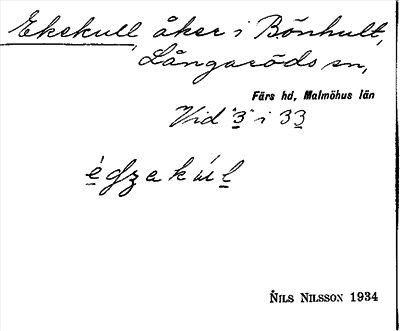 Ekekull, åker i Bönhult,
Långaröds sn,
Färs hd, Malmöhus län
Vid "3" i 33
NILS NILSSON 1934